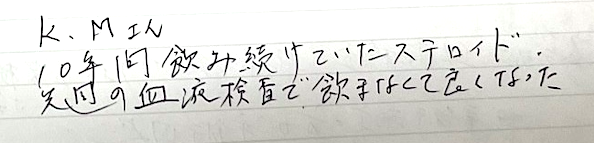 K.Mさん
10年間飲み続けていたステロイド.
先週の血液検査で飲まなくて良くなった